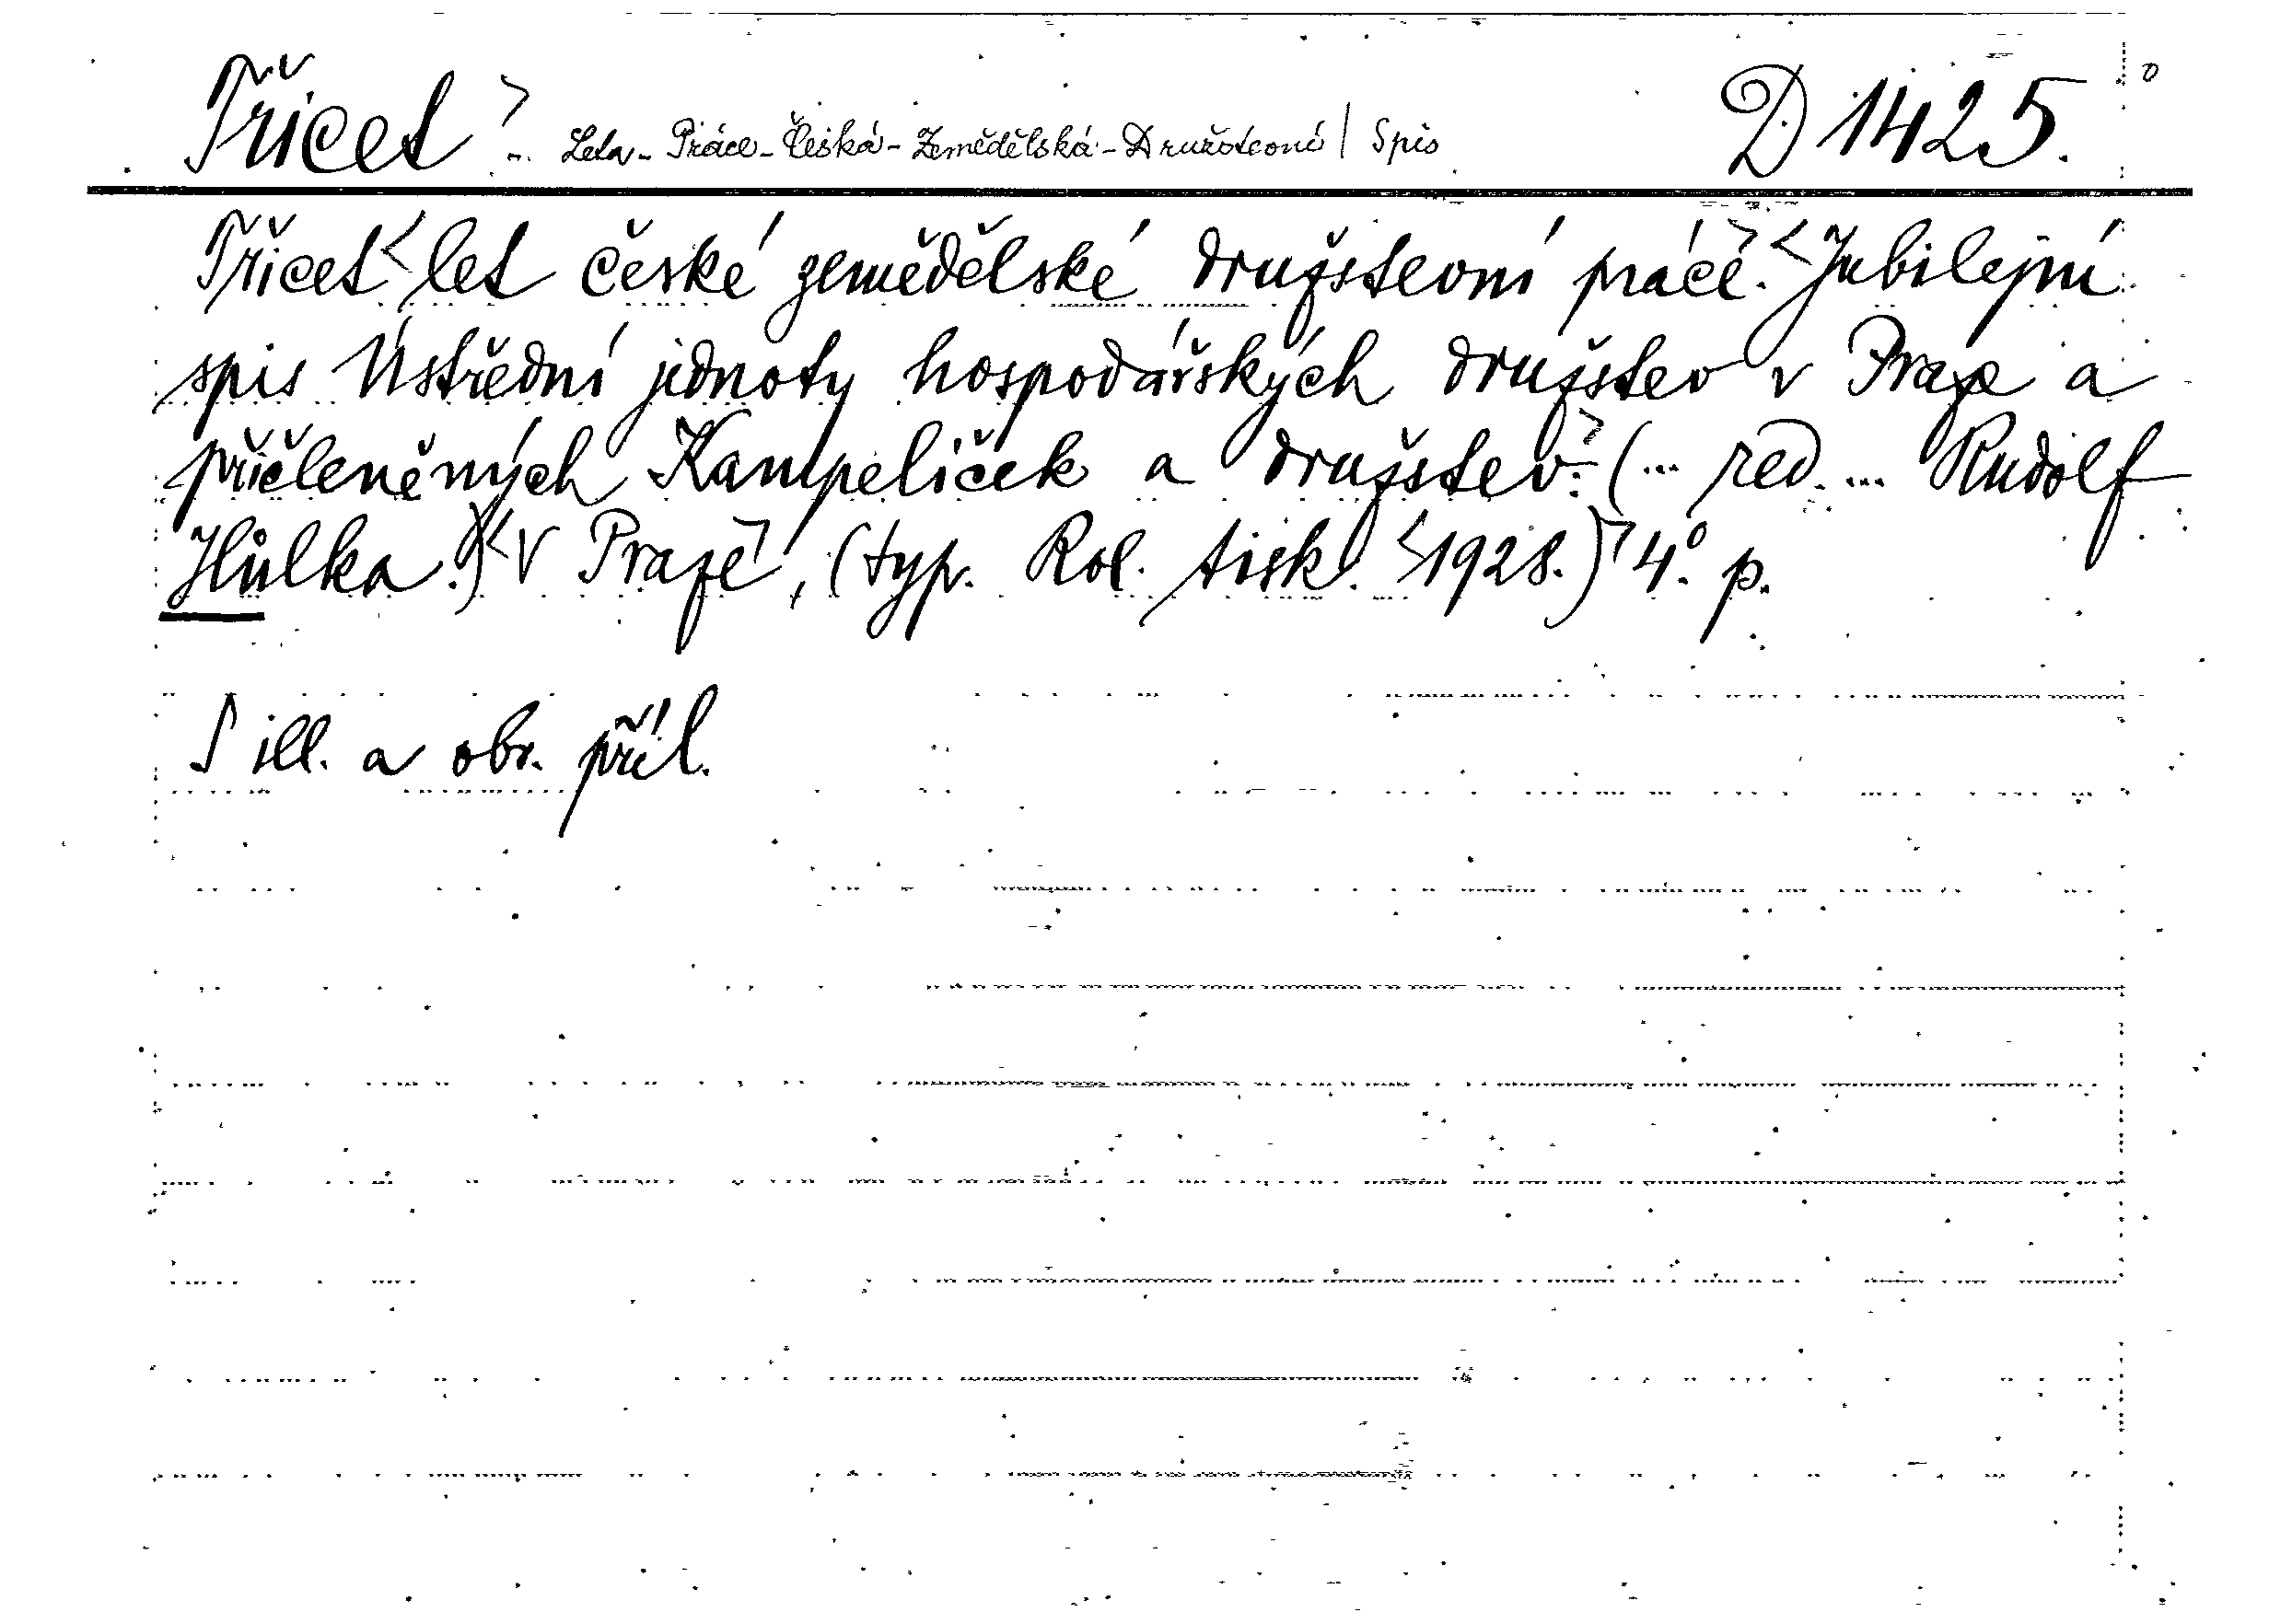 Třicet > .. Leta - Práce - Česká - Zemědělská - Družstevní | Spis D 1425.
Třicet < let české zemědělské družstevní práce. > < Jubilejní
spis Ústřední jednoty hospodářských družstev v Praze a
přičleněných Kampeliček a družstev. > (... red. ... Rudolf
Hůlka.) < V Praze >, (typ. Rol. tisk. < 1928.) > 4° p.
S ill. a obr. příl.